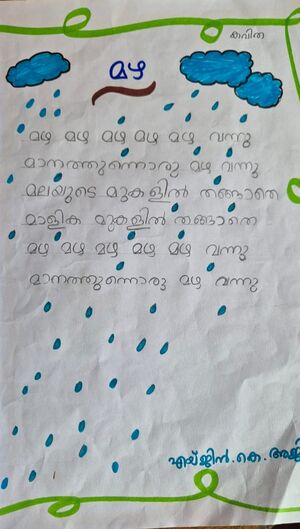 കവിത
മഴ
മഴ മഴ മഴ മഴ മഴ വന്നു
മാനത്തുന്നൊരു മഴ വന്നു
മലയുടെ മുകളിൽ തങ്ങാതെ
മാളിക മുകളിൽ തങ്ങാതെ
മഴ മഴ മഴ മഴ മഴ വന്നു
മാനത്തുന്നൊരു മഴ വന്നു
എയ്ജിൻ.കെ.